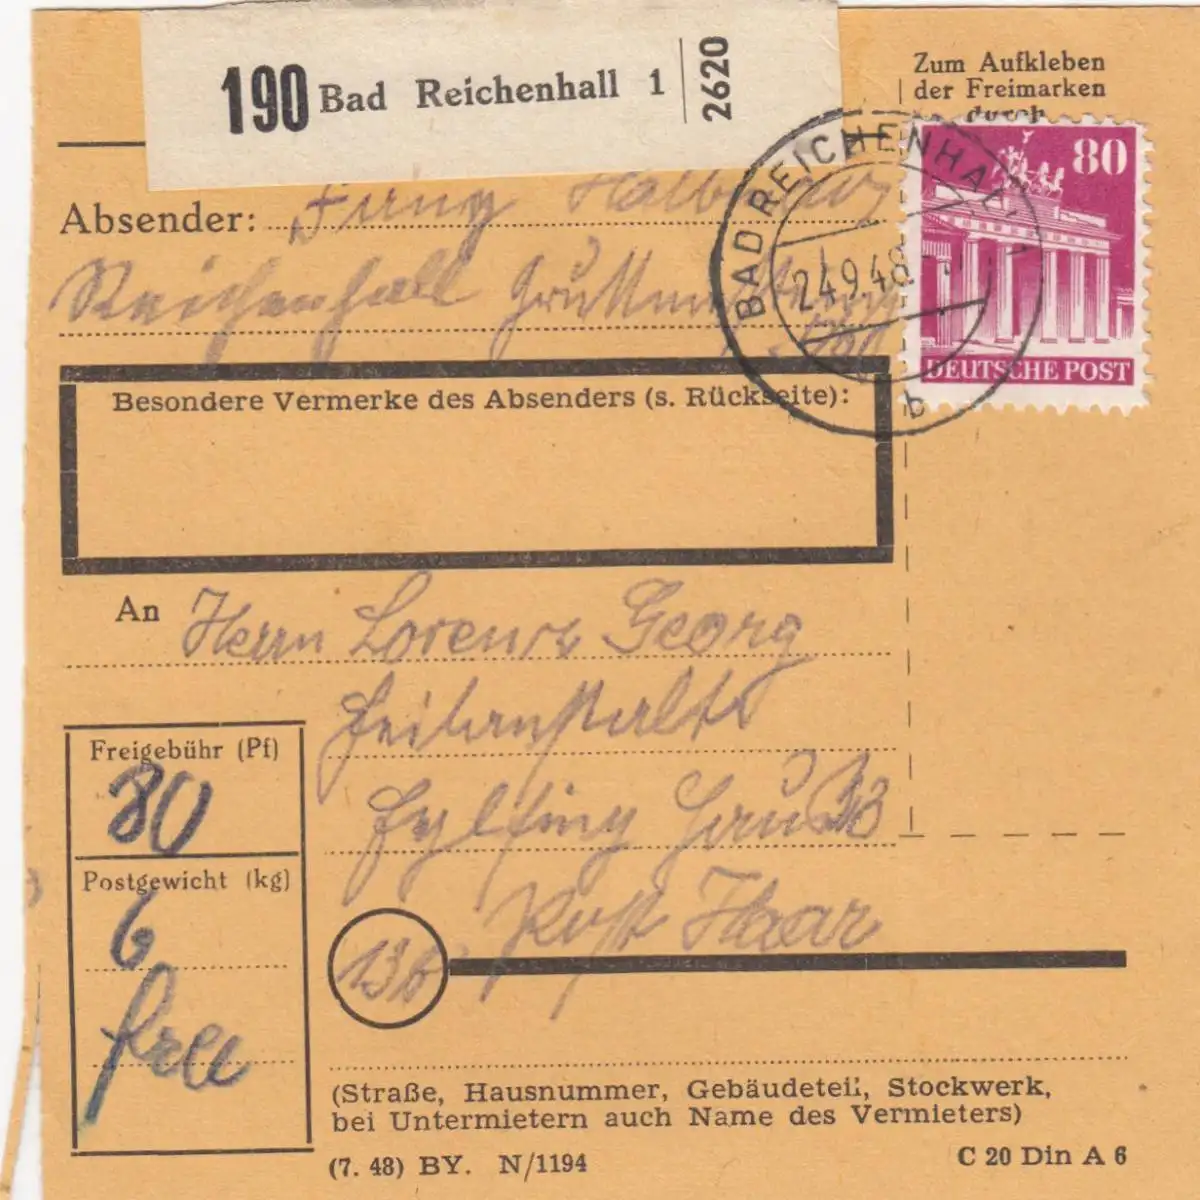 190 Bad Reichenhall 1 2620
Zum Aufkleben
der Freimarken
durch
80
DEUTSCHE POST
BAD REICHENHALL 1
24.9.48
b
Absender:
Reichenhall
Besondere Vermerke des Absenders (s. Rückseite):
An Herrn Lorenz Georg
Heilanstalt
Eglfing Haus 33
Post Haar
13b
Freigebühr (Pf)
80
Postgewicht (kg)
6
(Straße, Hausnummer, Gebäudeteil, Stockwerk,
bei Untermietern auch Name des Vermieters)
(7. 48) BY. N/1194
C 20 Din A 6